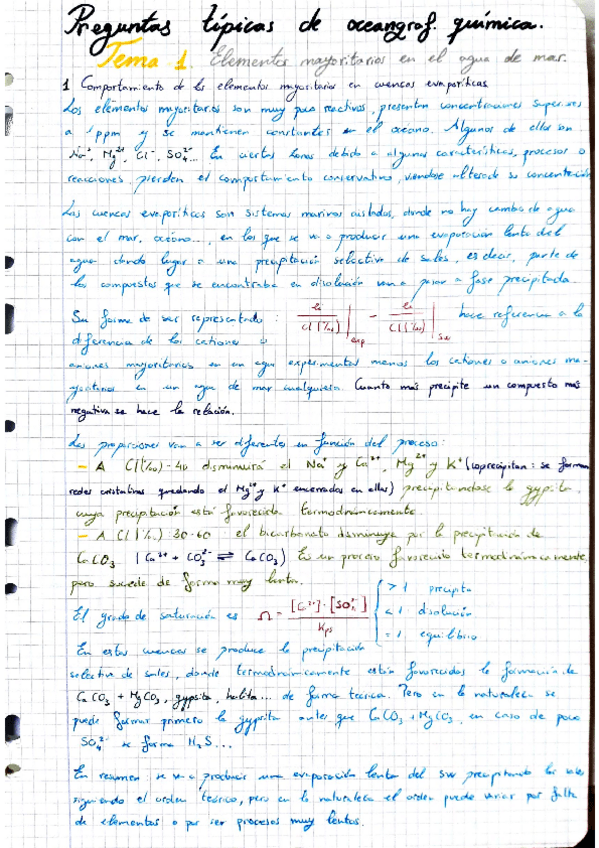 Preguntas típicas de oceanograf. química.
Tema 1. Elementos mayoritarios en el agua de mar.
1 Comportamiento de los elementos mayoritarios en cuencas evaporíticas
Los elementos mayoritarios son muy poco reactivos, presentan concentraciones superiores
a 1 ppm y se mantienen constantes en el océano. Algunos de ellos son
Na⁺, Mg²⁺, Cl⁻, SO₄²⁻... En ciertas zonas debido a algunas características, procesos o
reacciones pierden el comportamiento conservativo, viendose alterada su concentración
Las cuencas evaporíticas son sistemas marinos aislados, donde no hay cambio de agua
con el mar, océano..., en los que se va a producir una evaporación lenta del
agua dando lugar a una precipitación selectiva de sales, es decir, parte de
los compuestos que se encontraban en disolución van a pasar a fase precipitada.
Su forma de ser representada: ei / Cl(‰) | exp - ei / Cl(‰) | sw hace referencia a la
diferencia de los cationes o
aniones mayoritarios en un agua experimentos menos los cationes o aniones ma-
yoritarios en un agua de mar cualquiera. Cuanto más precipite un compuesto más
negativa se hace la relación.
Las proporciones van a ser diferentes en función del proceso:
- A Cl(‰)-40 disminuirá el Na⁺ y Ca²⁺, Mg²⁺ y K⁺ (coprecipitan: se forman
redes cristalinas quedando el Mg²⁺ y K⁺ encerrados en ellas) precipitandose la gypsita,
cuya precipitación está favorecida termodinamicamente.
- A Cl(‰) 30-60 el bicarbonato disminuye por la precipitación de
CaCO₃ (Ca²⁺ + CO₃²⁻ ⇌ CaCO₃) Es un proceso favorecido termodinámicamente,
pero sucede de forma muy lenta.
El grado de saturación es Ω = [Ca²⁺]·[SO₄²⁻] / Kps { > 1 precipita
< 1 disolución
= 1 equilibrio
En estas cuencas se produce la precipitación
selectiva de sales, donde termodinámicamente están favorecidos la formación de
CaCO₃ + MgCO₃, gypsita, halita... de forma teórica. Pero en la naturaleza se
puede formar primero la gypsita antes que CaCO₃ + MgCO₃, en caso de poco
SO₄²⁻ se forma H₂S...
En resumen se va a producir una evaporación lenta del sw precipitando las sales
siguiendo el orden teórico, pero en la naturaleza el orden puede variar por falta
de elementos o por ser procesos muy lentos.